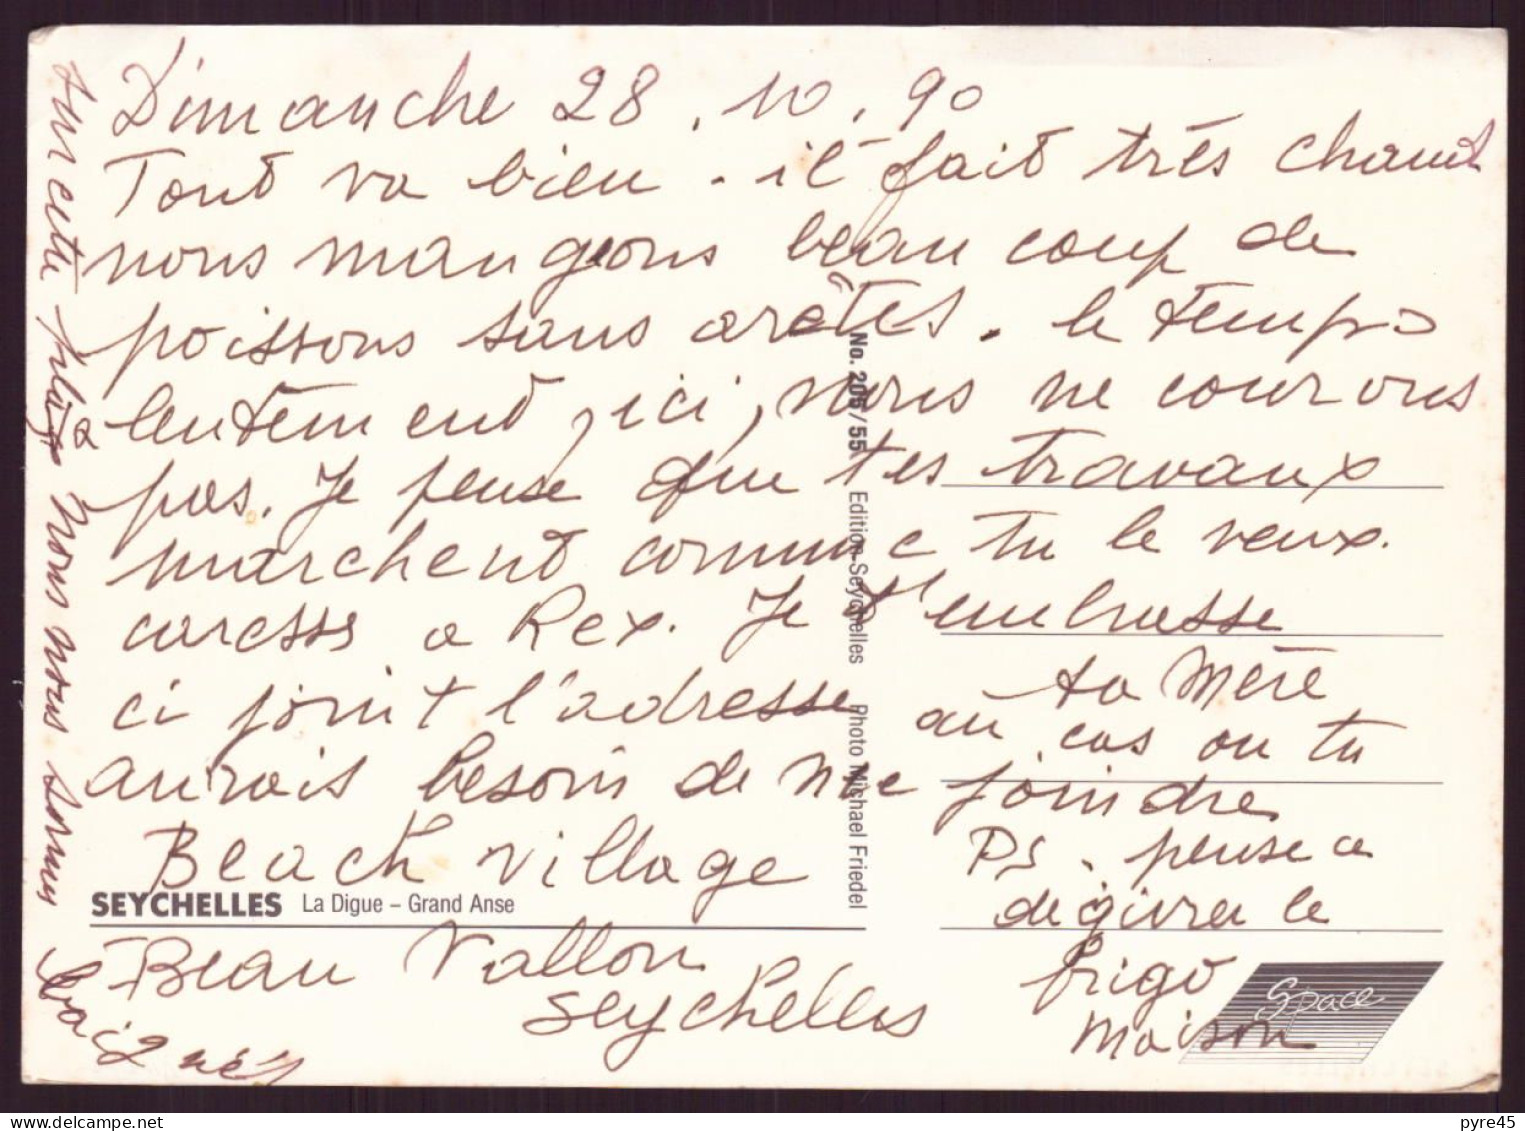 Dimanche 28.10.90
Tout va bien. il fait très chaud
nous mangeons beaucoup de
poissons sans arêtes. le temps
lentement, ici, nous ne courons
pas. Je pense que tes travaux
marchent comme tu le veux.
caresses a Rex. Je t'embrasse
ta Mère
ci joint l'adresse au cas ou tu
aurais besoin de me joindre
Beach village
Beau Vallon
Seychelles
PS. pense a
degivrer le
frigo
Maison
sur cette plage nous nous sommes
baignées
SEYCHELLES La Digue – Grand Anse
No. 205/55 Edition Seychelles Photo Michael Friedel
Space
pyre45